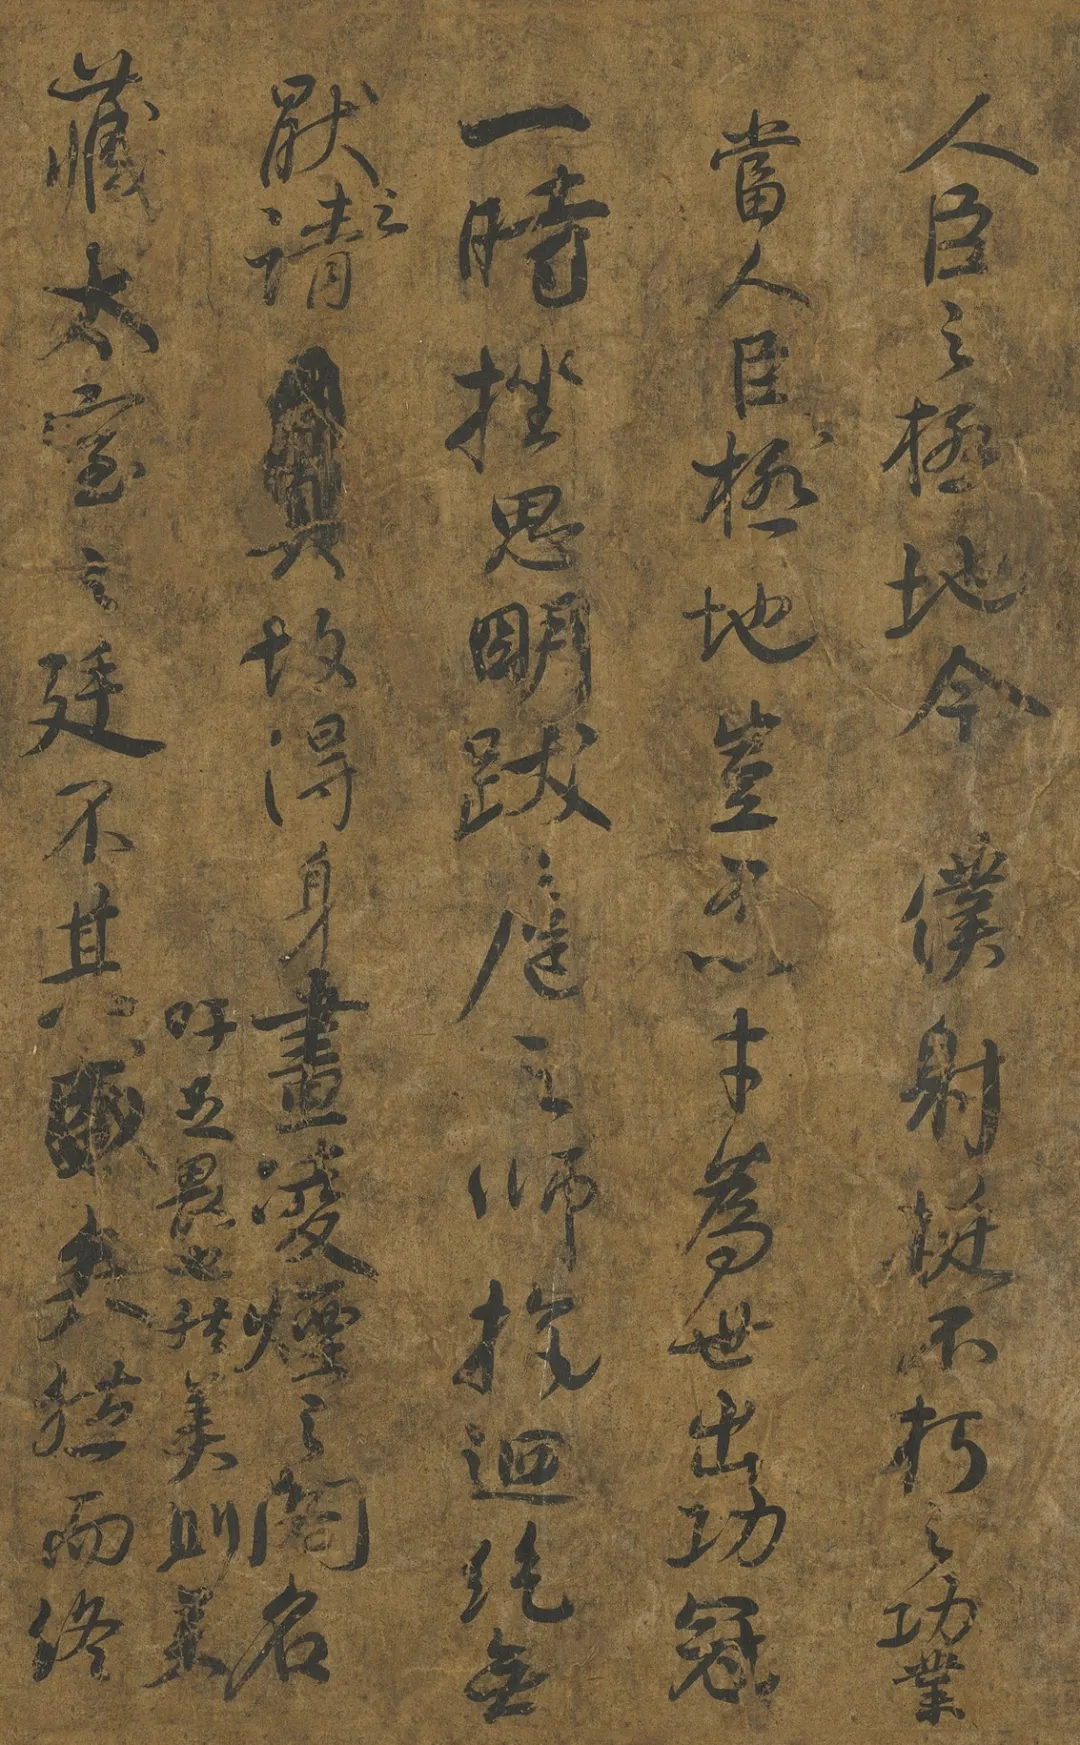 人臣之極地今僕射挺不朽之功業
當人臣極地豈不以才為世出功冠
一時挫思明跋扈之師抗迴紇無
厭之請故得身畫凌煙之閣名
吁足畏也然美則美
藏太室之廷不其矣然而終